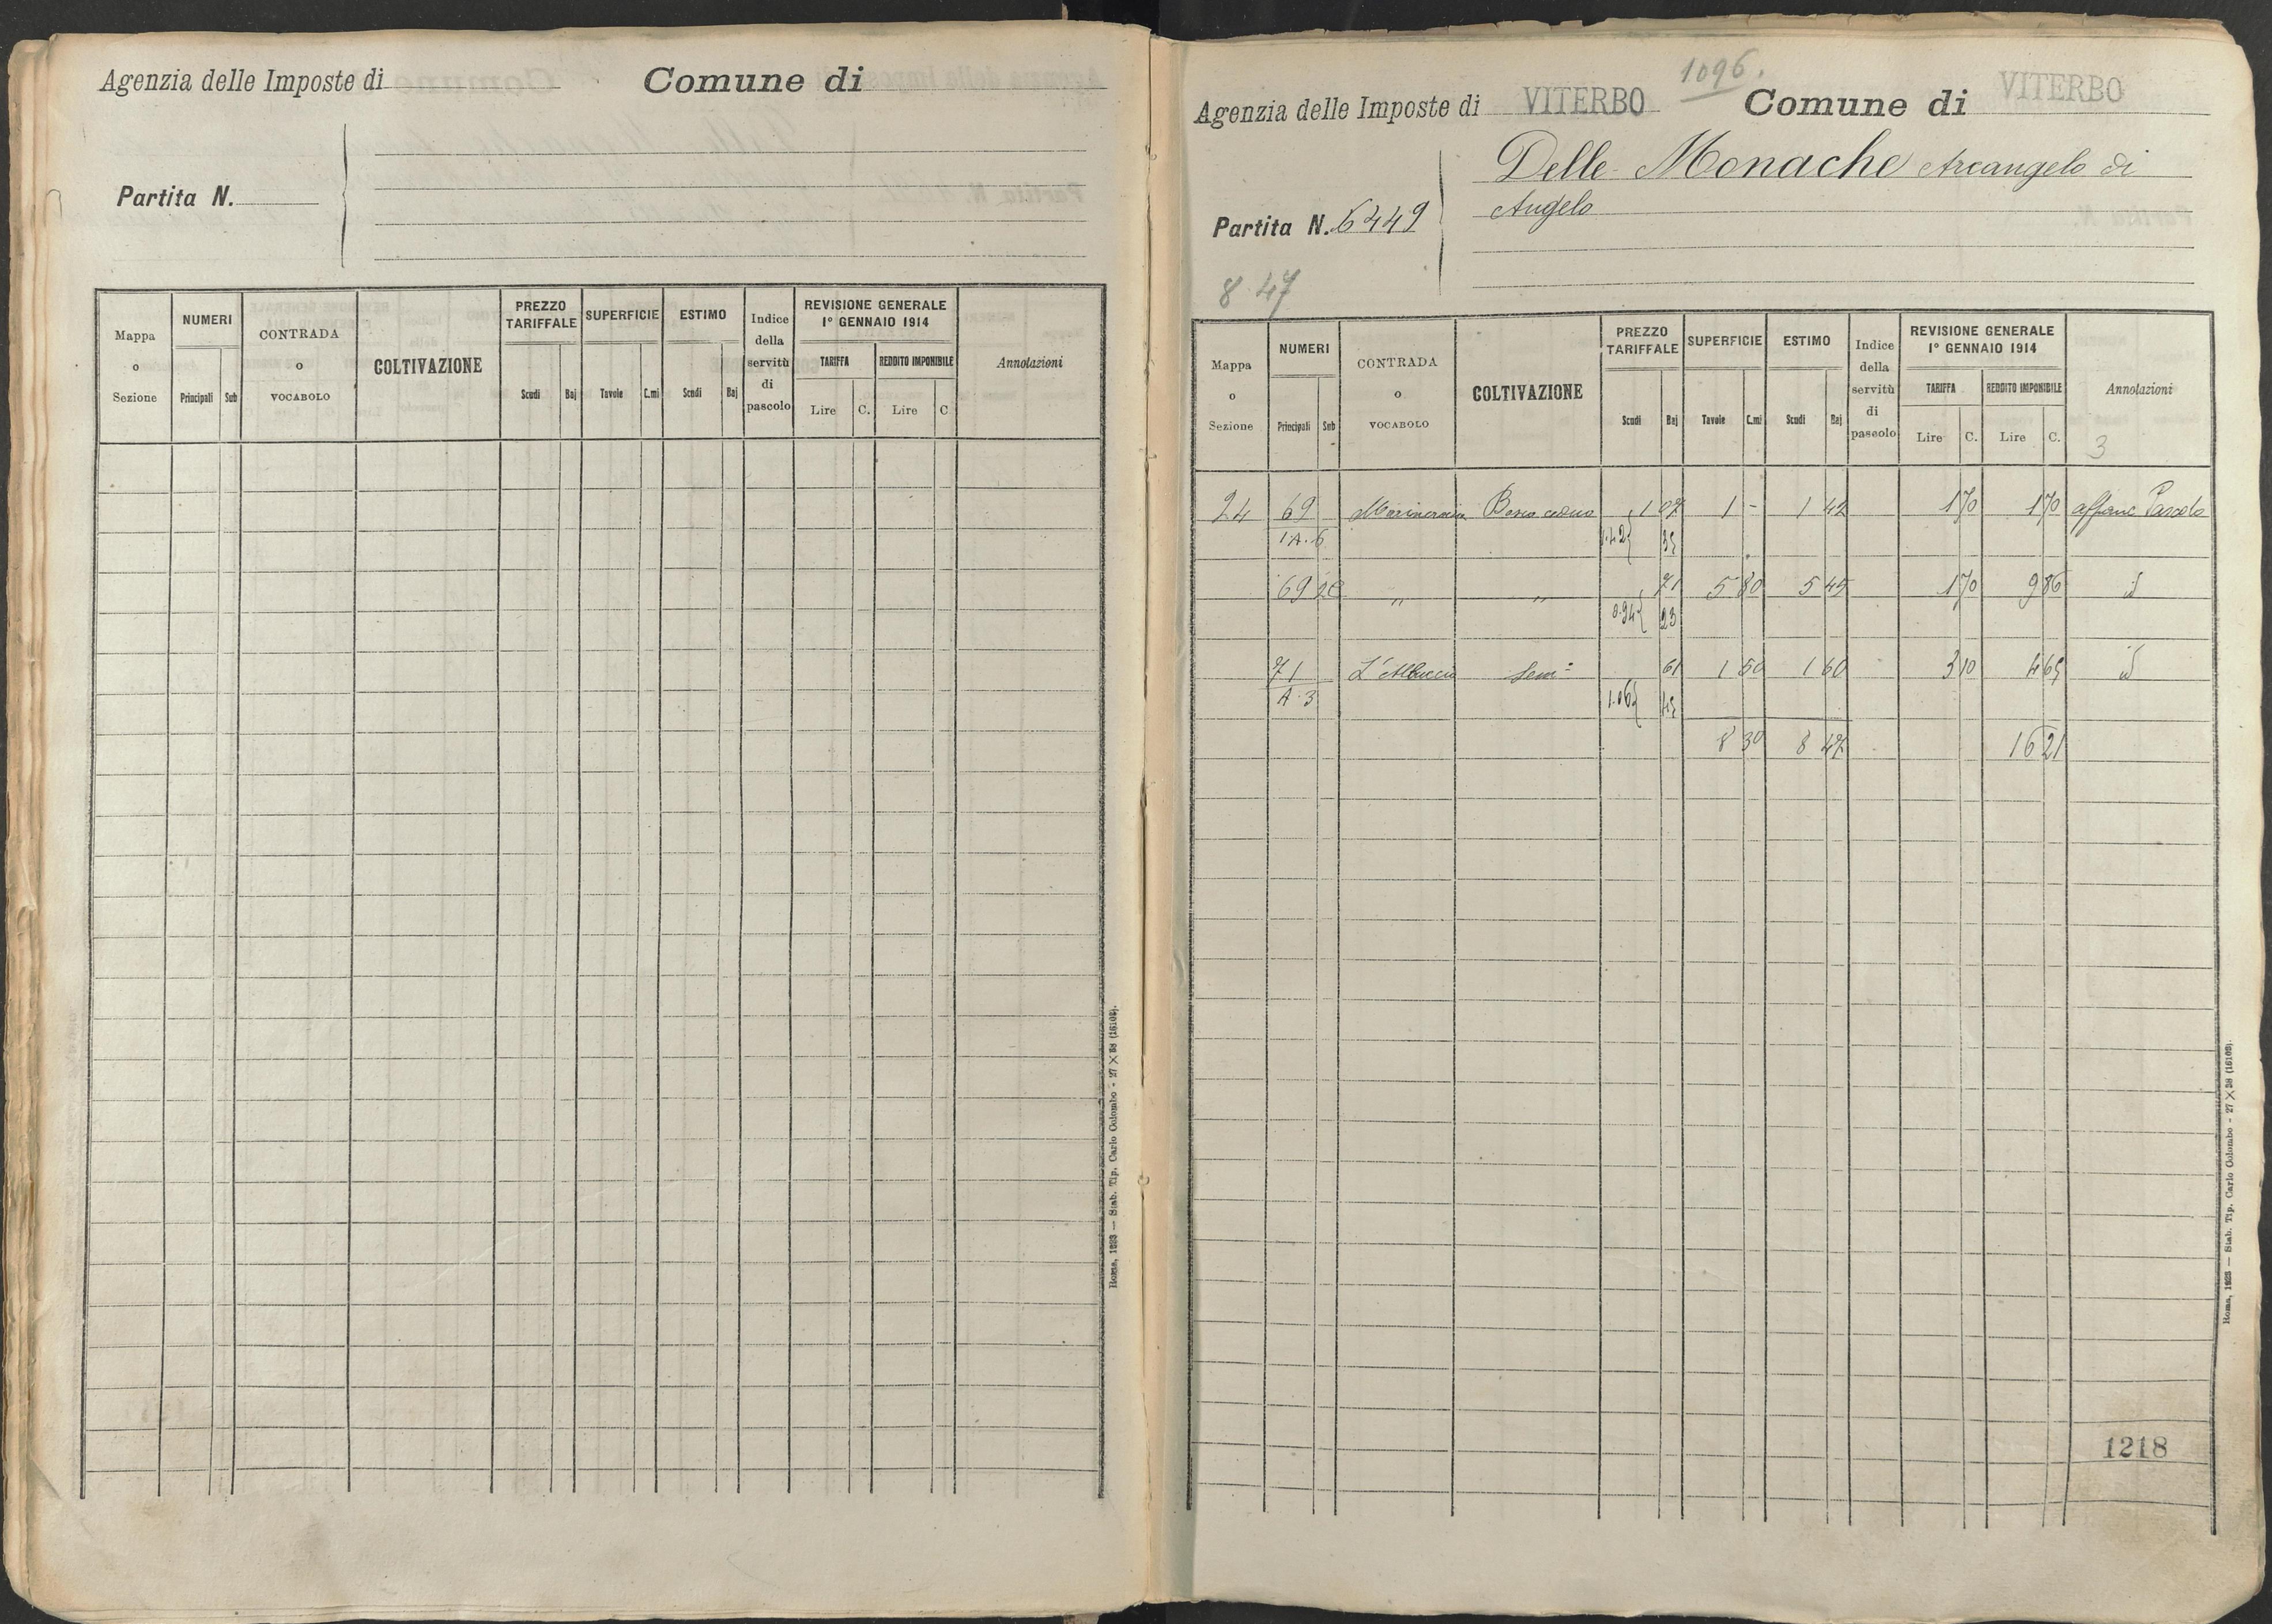 Agenzia delle Imposte di Comune di
Partita N.
Mappa o Sezione NUMERI Principali Sub CONTRADA o VOCABOLO COLTIVAZIONE PREZZO TARIFFALE Scudi Baj SUPERFICIE Tavole C.mi ESTIMO Scudi Baj Indice della servitù di pascolo REVISIONE GENERALE 1° GENNAIO 1914 TARIFFA Lire C. REDDITO IMPONIBILE Lire C. Annotazioni
Roma, 1923 — Stab. Tip. Carlo Colombo - 27 X 38 (16103).
1096.
Agenzia delle Imposte di VITERBO Comune di VITERBO
Delle Monache Arcangelo di
Angelo
Partita N. 6449
8 47
Mappa o Sezione NUMERI Principali Sub CONTRADA o VOCABOLO COLTIVAZIONE PREZZO TARIFFALE Scudi Baj SUPERFICIE Tavole C.mi ESTIMO Scudi Baj Indice della servitù di pascolo REVISIONE GENERALE 1° GENNAIO 1914 TARIFFA Lire C. REDDITO IMPONIBILE Lire C. Annotazioni
3
24 69 Bosco ceduo 1 07 1 - 1 42 1 70 1 70 affranc Pascolo
1.A.6 1.42 35
69 " " 71 5 80 5 45 1 70 9 86 id
0.94 23
71 Sem: 61 1 50 1 60 3 10 4 65 id
A.3 1.06 45
8 30 8 47 16 21
1218
Roma, 1923 — Stab. Tip. Carlo Colombo - 27 X 38 (16103).